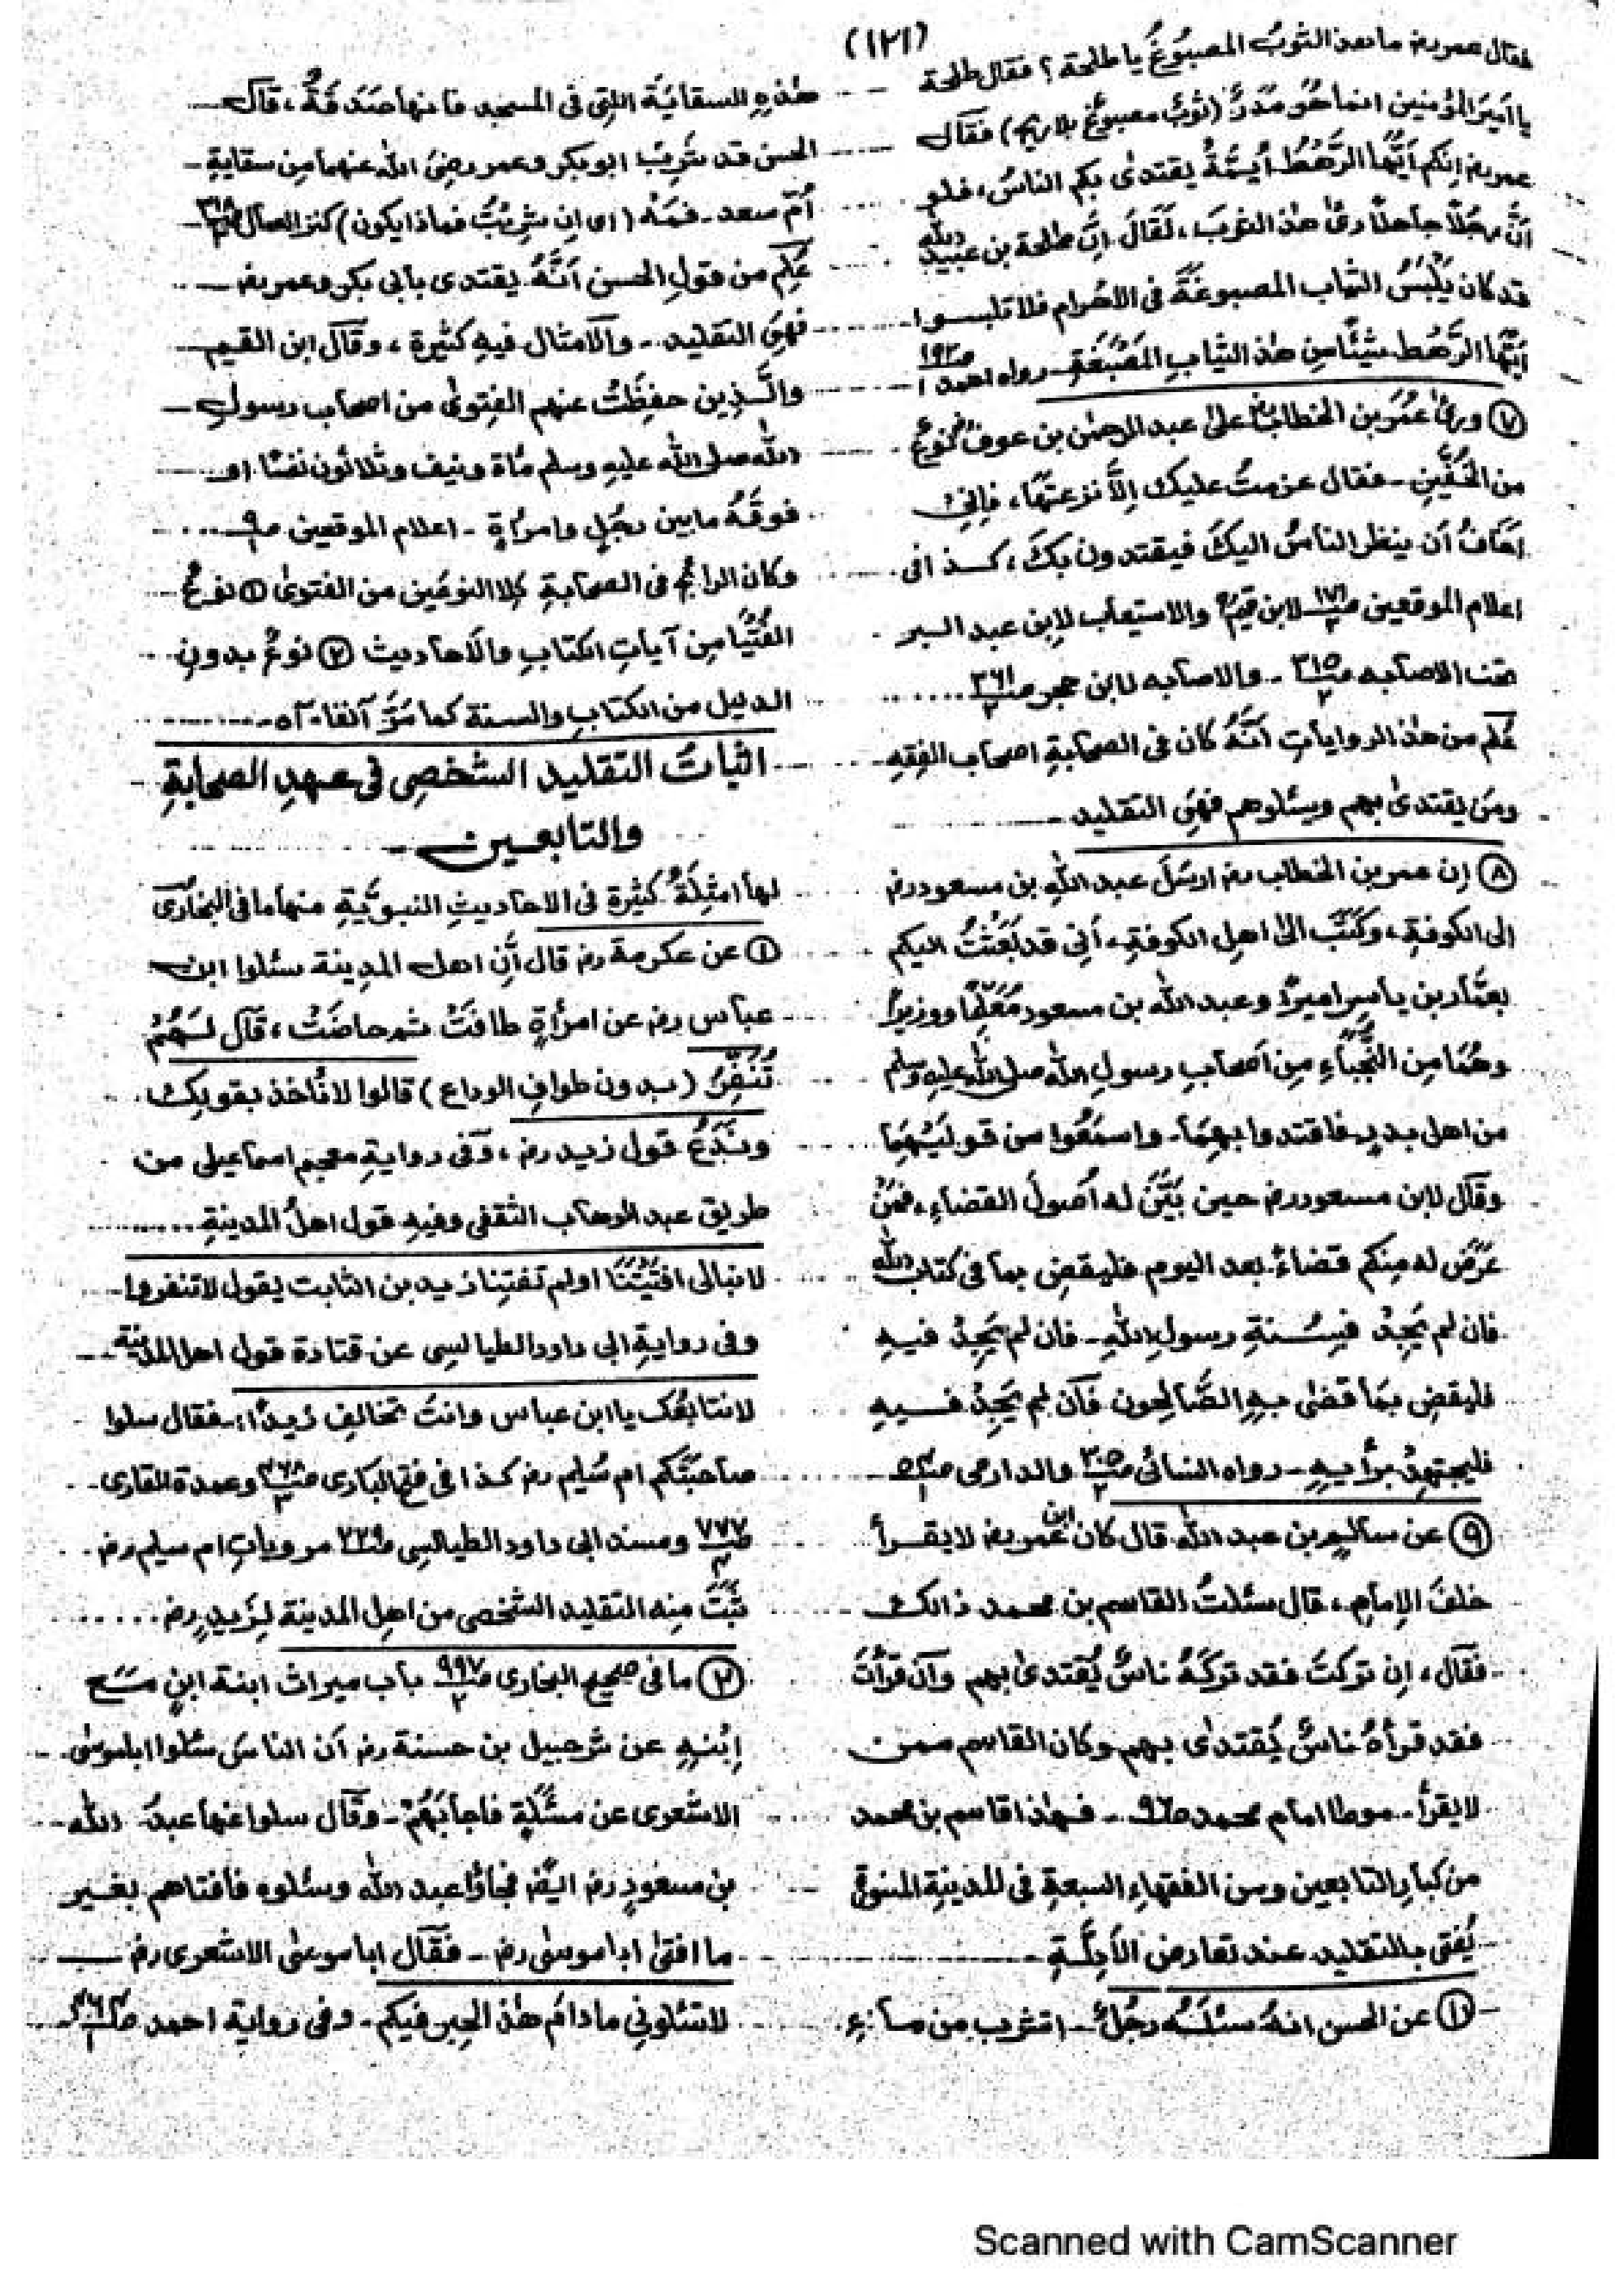 (١٢١)
فقال عمر رض ما هذا الثوبُ المصبُوغُ يا طلحة؟ فقال طلحة
يا اميرَ المؤمنين انما هُو مَدَرٌ (ثوبٌ مصبوغٌ بلا ريح) فقال
عمر رض إنكم أيُّها الرَّهُطُ أيِمَّةُ يقتدىٰ بكم الناسُ، فلو
أنَّ رجُلاً جاهلاً رىٰ هذا الثوبَ، لَقَالَ إنَّ طلحة بن عبيد الله
قد كان يَلْبَسُ الثياب المصبوغَةَ فى الاحْرام فلا تلبسوا
أيُّها الرَّهُط شيئًا من هٰذ الثيابِ المَصْبَغَةِ ـ رواه احمد ١/١٩٢
⑦ ورىٰ عُمَرَ بن الخطاب رض علىٰ عبد الرحمٰن بن عوف رض نوعٌ
من الخُفَّينِ ـ فقال عزمتُ عليك إلاَّ نزعتَهَا، فإنِّى
اخافُ أن ينظر الناسُ اليكَ فيقتدون بكَ، كذافى
اعلام الموقعين ص١٧١/٢ لابن قيم رح والاستيعاب لِابن عبد البر
تحت الاصابه ص٣١٥/٢ ـ والاصابه لابن حجر ص٣٦١/٢
عُلم من هٰذ الروايات انَّهُ كان فى الصحابةِ اصحاب الفِقهِ
ومَن يقتدىٰ بهم ويسئلوهم فهِىَ التقليد ـ
⑧ إن عمر بن الخطاب رض ارسَلَ عبد اللهِ بن مسعود رض
الى الكوفةِ، وكَتَبَ الىٰ اهلِ الكوفةِ، أنى قد بَعَثْتُ اليكم
بعمَّار بن ياسرٍ اميرًا وعبد الله بن مسعود مُعَلِّمًا ووزيرًا
وهُمَا مِن النُّجَبَاءِ مِن أصحابِ رسولِ الله صلى الله عليه وسلم
من اهل بدرٍ فاقتدوا بهِمَا ـ واسمَعُوا من قولَيْهِمَا
وقال لابن مسعود رض حين بَيَّنَ له أصُولَ القضاءِ، فمَنْ
عَرَضَ له منكم قضاءٌ بعد اليوم فليقضِ بما فى كتاب الله
فان لم يَجِدْ فبِسُنةِ رسولِ اللهِ ـ فان لم يَجِدْ فيهِ
فليقضِ بِمَا قضٰى بهِ الصَّالِحون فان لم يَجِدْ فيهِ
فليجتهدْ برأيهِ ـ رواه النسائى ص٣٠٥/٢ والدارمى
⑨ عن سالمِ بن عبد الله قال كان ابن عمر رض لا يقرأ
خلفَ الإمامِ، قال سئلتُ القاسم بن محمد ذالك
فقال، إن تركتَ فقد تركَهُ ناسٌ يُقتدىٰ بهم وان قرأتَ
فقد قرأهُ ناسٌ يُقتدىٰ بهم وكان القاسم ممن
لا يقرأ ـ موطا امام محمد ص٩٦ ـ فهٰذا قاسم بن محمد
من كبارِ التابعين ومن الفقهاءِ السبعةِ فى المدينةِ المنورة
يُفتى بالتقليد عند تعارض الأدِلَّةِ ـ
⑩ عن الحسن انهُ سئلَهُ رجُلٌ ـ اتشرب من ماءِ
هٰذهِ السقايَة اللتِى فى المسجد فانها صَدَقَةٌ، قال
الحسن قد شَرِبَ ابوبكر وعمر رضى الله عنهما مِن سقايةِ
أُمّ سعد ـ فمَهْ (اى ان شرِبْتُ فماذا يكون) كنز العمال
عُلِم من قولِ الحسن أنَّهُ يقتدى بابى بكر وعمر رض
فهِىَ التقليد ـ والامثال فيهِ كثيرة، وقال ابن القيم
والَّذِين حفِظَتْ عنهم الفِتوىٰ من اصحاب رسول
الله صلى الله عليه وسلم مأة ونيف وثلاثون نفسًا او
فوقَهُ ما بين رجُلٍ وامرأةٍ ـ اعلام الموقعين ص٩
وكان الرائج فى الصحابةِ كِلا النوعَين من الفتوىٰ ① نوعُ
الفُتْيَا مِن آياتِ الكتابِ والاحاديث ② نوعٌ بدونِ
الدليل من الكتابِ والسنة كما مَرَّ آنفا ـ اه ـ
اثباتُ التقليد الشخصِى فى عهدِ الصحابةِ
والتابعين
لها امثِلَةٌ كثيرة فى الاحاديثِ النبوِيَّةِ منها ما فى البخارى
① عن عكرمة رض قال أنَّ اهل المدينة سئلوا ابن
عباس رض عن امرأةٍ طافَتْ ثم حاضَتْ، قال لَهُمْ
تُنَفِّرُ (بدون طوافِ الوداع) قالوا لا نأخذ بقولك
ونَدَعُ قول زيد رض، وفى روايةِ معجم اسماعيلى من
طريق عبد الوهاب الثقفى وفيهِ قول اهلُ المدينةِ
لا نبالى افتَيْتَنَا او لم تفتِنا زيد بن الثابت يقول لا تنفر
وفى روايةِ ابى داود الطيالسى عن قتادة قول اهل المدينة
لا نتابعُك يا ابن عباس وانتَ تخالفِ زيدًا، فقال سلوا
صاحبتَكم ام سُليم رض كذا فى فتح البارى ص٤٦٨/٣ وعمدة القارى
ص٧٧٧/٤ ومسند ابى داود الطيالسِى ص٢٢٩ مرويات ام سليم رض
ثَبَتَ منه التقليد الشخصى من اهلِ المدينة لِزَيدٍ رض
② ما فى صحيح البخارى ص٩٩٧/٢ باب ميراث ابنة ابنٍ مَعَ
إبْنِهِ عن شرحبيل بن حسنة رض أن الناسَ سئلوا ابا موسٰى
الاشعرى عن مسْئلَةٍ فاجابَهُمْ ـ وقال سلوا عنها عبدَ الله
بن مسعُودٍ رض ايضًا فجاؤا عبد الله وسئلوه فأفتاهم بغير
ما افتىٰ ابا موسٰى رض ـ فقال ابا موسٰى الاشعرى رض
لا تسئلونى مادامَ هٰذ الحِبر فيكم ـ وفى رواية احمد
Scanned with CamScanner